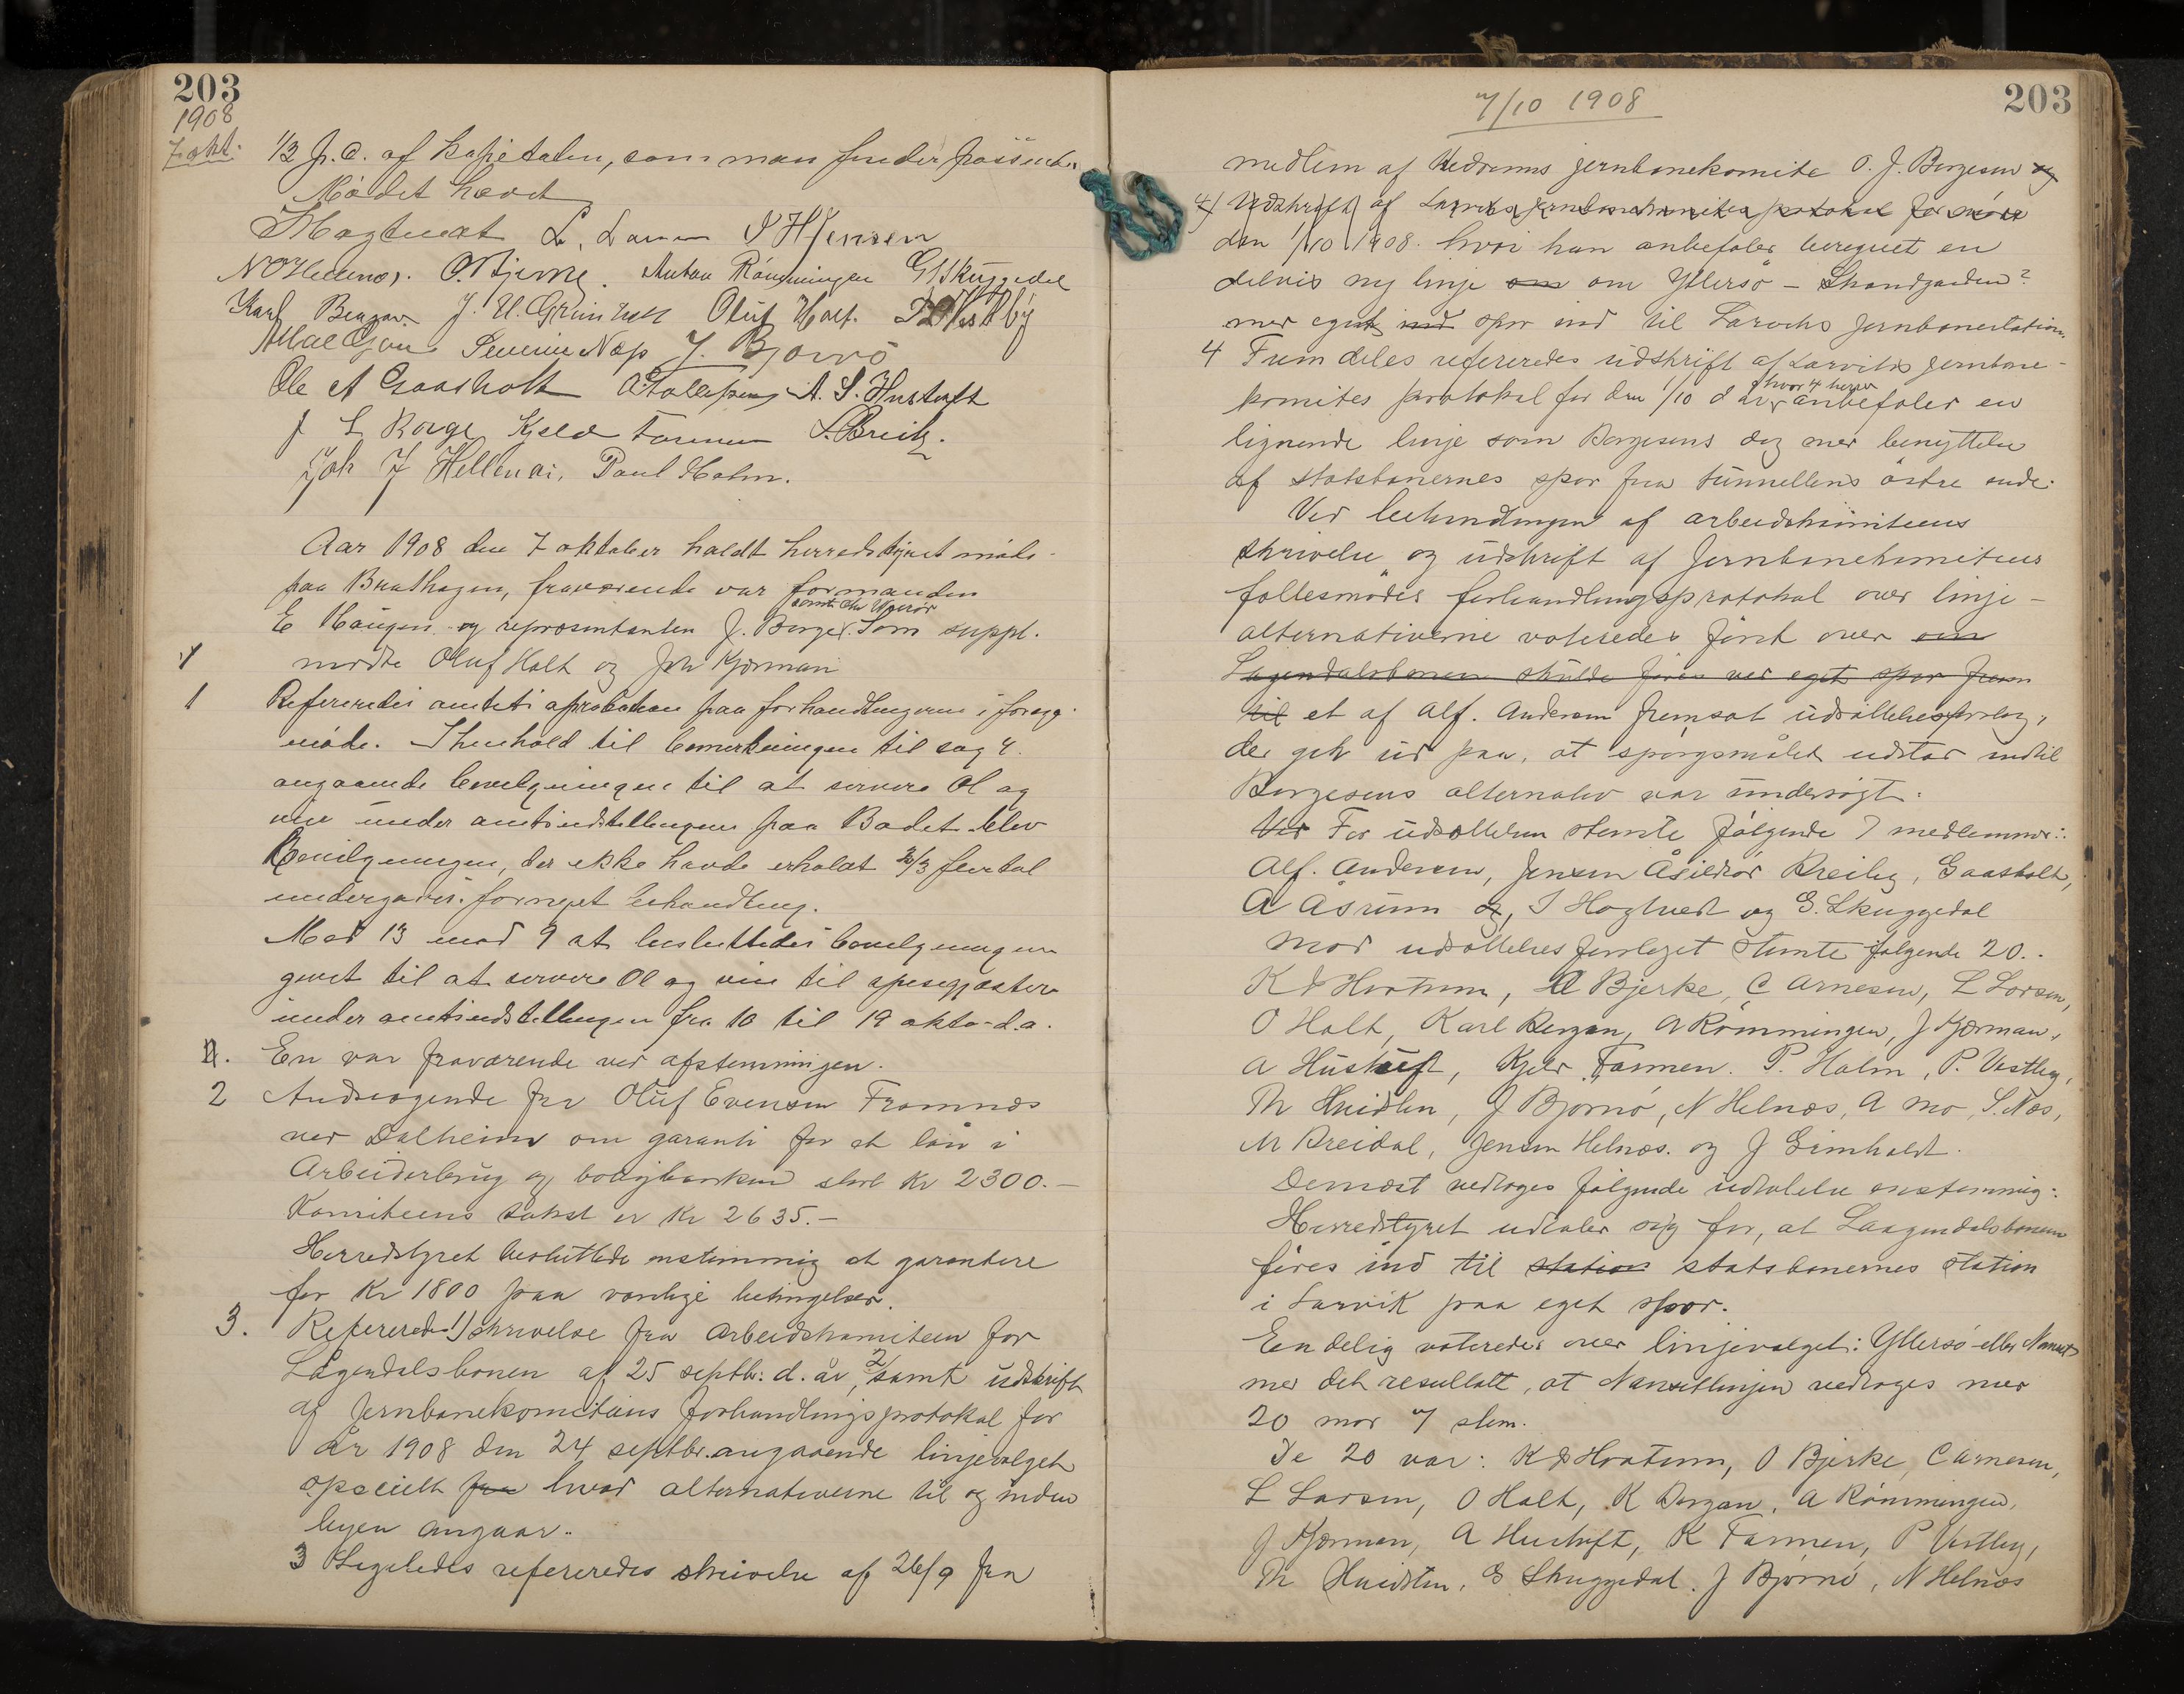 203
1908
7 okt.
1/2 p.c. af kapitalen, som man finder passende.
Mödet hævet
S Hagtvedt L. Larsen S H Jensen
N O Hellenes. O. Bjerke. Anton Römmingen G Skuggedal
Karl Bergan. J. U. Grimholt Oluf Holt. P Vestby
Severin Næs J. Bjørnö
Ole A Gaasholt A. S. Hustuft
J L Borge Kjeld Farmen S. Breily.
Joh J Hellenæs, Paul Holm.
Aar 1908 den 7 oktober holdt herredstyret möde
paa Brathagen, fraværende var formanden
E Haugen og repræsentanten J. Borge. Som suppl.
mödte Oluf Holt og Joh Kjørman
1
1 Refereredes amtets aprobation paa forhandlingerne i forrige
möde. I henhold til bemerkningen til sag 4.
angaaende bevilgningen til at servere Ol og
vin under amtsudstillingen paa Badet blev
Bevilgningen, der ikke havde erholdt 2/3 flertal
undergaves fornyet behandling.
Med 13 mod 9 at besluttedes bevilgningen
givet til at servere Ol og vin til spisegjæster
under amtsudstillingen fra 10 til 19 okto. d.a.
En var fraværende ved afstemningen.
2 Andragende fra Oluf Evensen Framnæs
ved Dalheim om garanti for et lån i
Arbeiderbrug og boligbanken stort Kr 2300.—
Komiteens takst er Kr 2635.—
Herredstyret besluttede enstemmig at garantere
for Kr 1800 paa vanlige betingelser.
3. Refereredes 1) skrivelse fra Arbeidskomiteen for
Lågendalsbanen af 25 septbr. d. år, 2) samt udskrift
af Jernbanekomiteens forhandlingsprotokol for
år 1908 den 24 septbr. angaaende linjevalget
specielt fra hvad alternativerne til og inden
byen angaar.
3 Ligeledes refereredes skrivelse af 26/9 fra
7/10 1908
203
medlem af Hedrums jernbanekomite O. J. Borgesen og
4) Udskrift af Larviks jernbanekomites protokol for möde
den 1/10 1908. hvori han anbefaler beregnet en
delvis ny linje om om Yttersö – Strandgaden?
med eget ind spor ind til Larviks Jernbanestation.
4 Fremdeles refereredes udskrift af Larviks jernbane-
komites protokol for den 1/10 d år, hvor 4 herrer anbefaler en
lignende linje som Borgesens dog med benyttelse
af statsbanernes spor fra tunnellens östre ende.
Ved behandlingen af arbeidskomiteens
skrivelse og udskrift af Jernbanekomiteens
fællesmödes forhandlingsprotokol over linje-
alternativerne voteredes först over om
Lagendalsbanen skulde föres ved eget spor frem
til et af Alf. Andersen fremsat udsættelsesforslag,
der gik ud paa, at spörgsmålet udstår indtil
Borgesens alternativ var undersögt.
Ved For udsættelsen stemte fölgende 7 medlemmer:
Alf. Andersen, Jensen Åsildrød Breiby, Gaasholt,
A Åsrum og, S Hagtvedt og G. Skuggedal
Mod udsættelsesforslaget stemte fölgende 20.
K & Hvatum, O Bjerke, C Arnesen, L Larsen,
O Holt, Karl Bergan, A Römmingen, J Kjørman,
A Hustuft, Kjeld Farmen. P. Holm, P. Vestby,
Th Hvidsten, J Bjørnö, N Helnæs, A Mo, S. Næs,
M Breidal, Jensen Helnæs. og J Grimholdt.
Dernæst vedtoges fölgende udtalelse enstemmig:
Herredstyret udtaler sig for, at Laagendalsbanen
föres ind til station statsbanernes station
i Larvik paa eget spor.
Endelig voteredes over linjevalget: Yttersö eller Nanset
med det resultatt, at Nansetlinjen vedtoges med
20 mod 7 stem.
De 20 var: K & Hvatum, O Bjerke, C Arnesen,
L Larsen, O Holt, K Bergan, A Römmingen,
J Kjørman, A Hustuft, K Farmen, P Vestby,
Th Hvidsten, G Skuggedal. J Bjørnö, N Helnæs